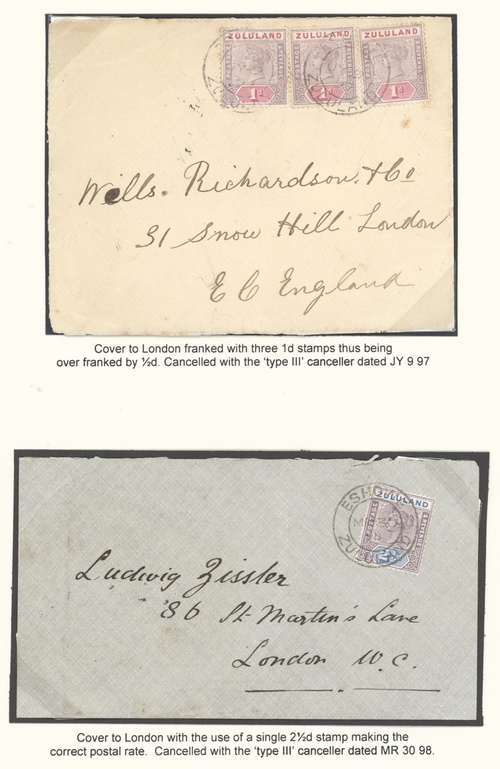 ZULULAND ZULULAND ZULULAND
POSTAGE
1d 1d 1d
Wells. Richardson. & Co
31 Snow Hill London
E C England
Cover to London franked with three 1d stamps thus being
over franked by ½d. Cancelled with the 'type III' canceller dated JY 9 97
ESHOWE
ZULULAND
POSTAGE
ZULULAND
Ludwig Zissler
86 St Martin's Lane
London W.C.
Cover to London with the use of a single 2½d stamp making the
correct postal rate. Cancelled with the 'type III' canceller dated MR 30 98.